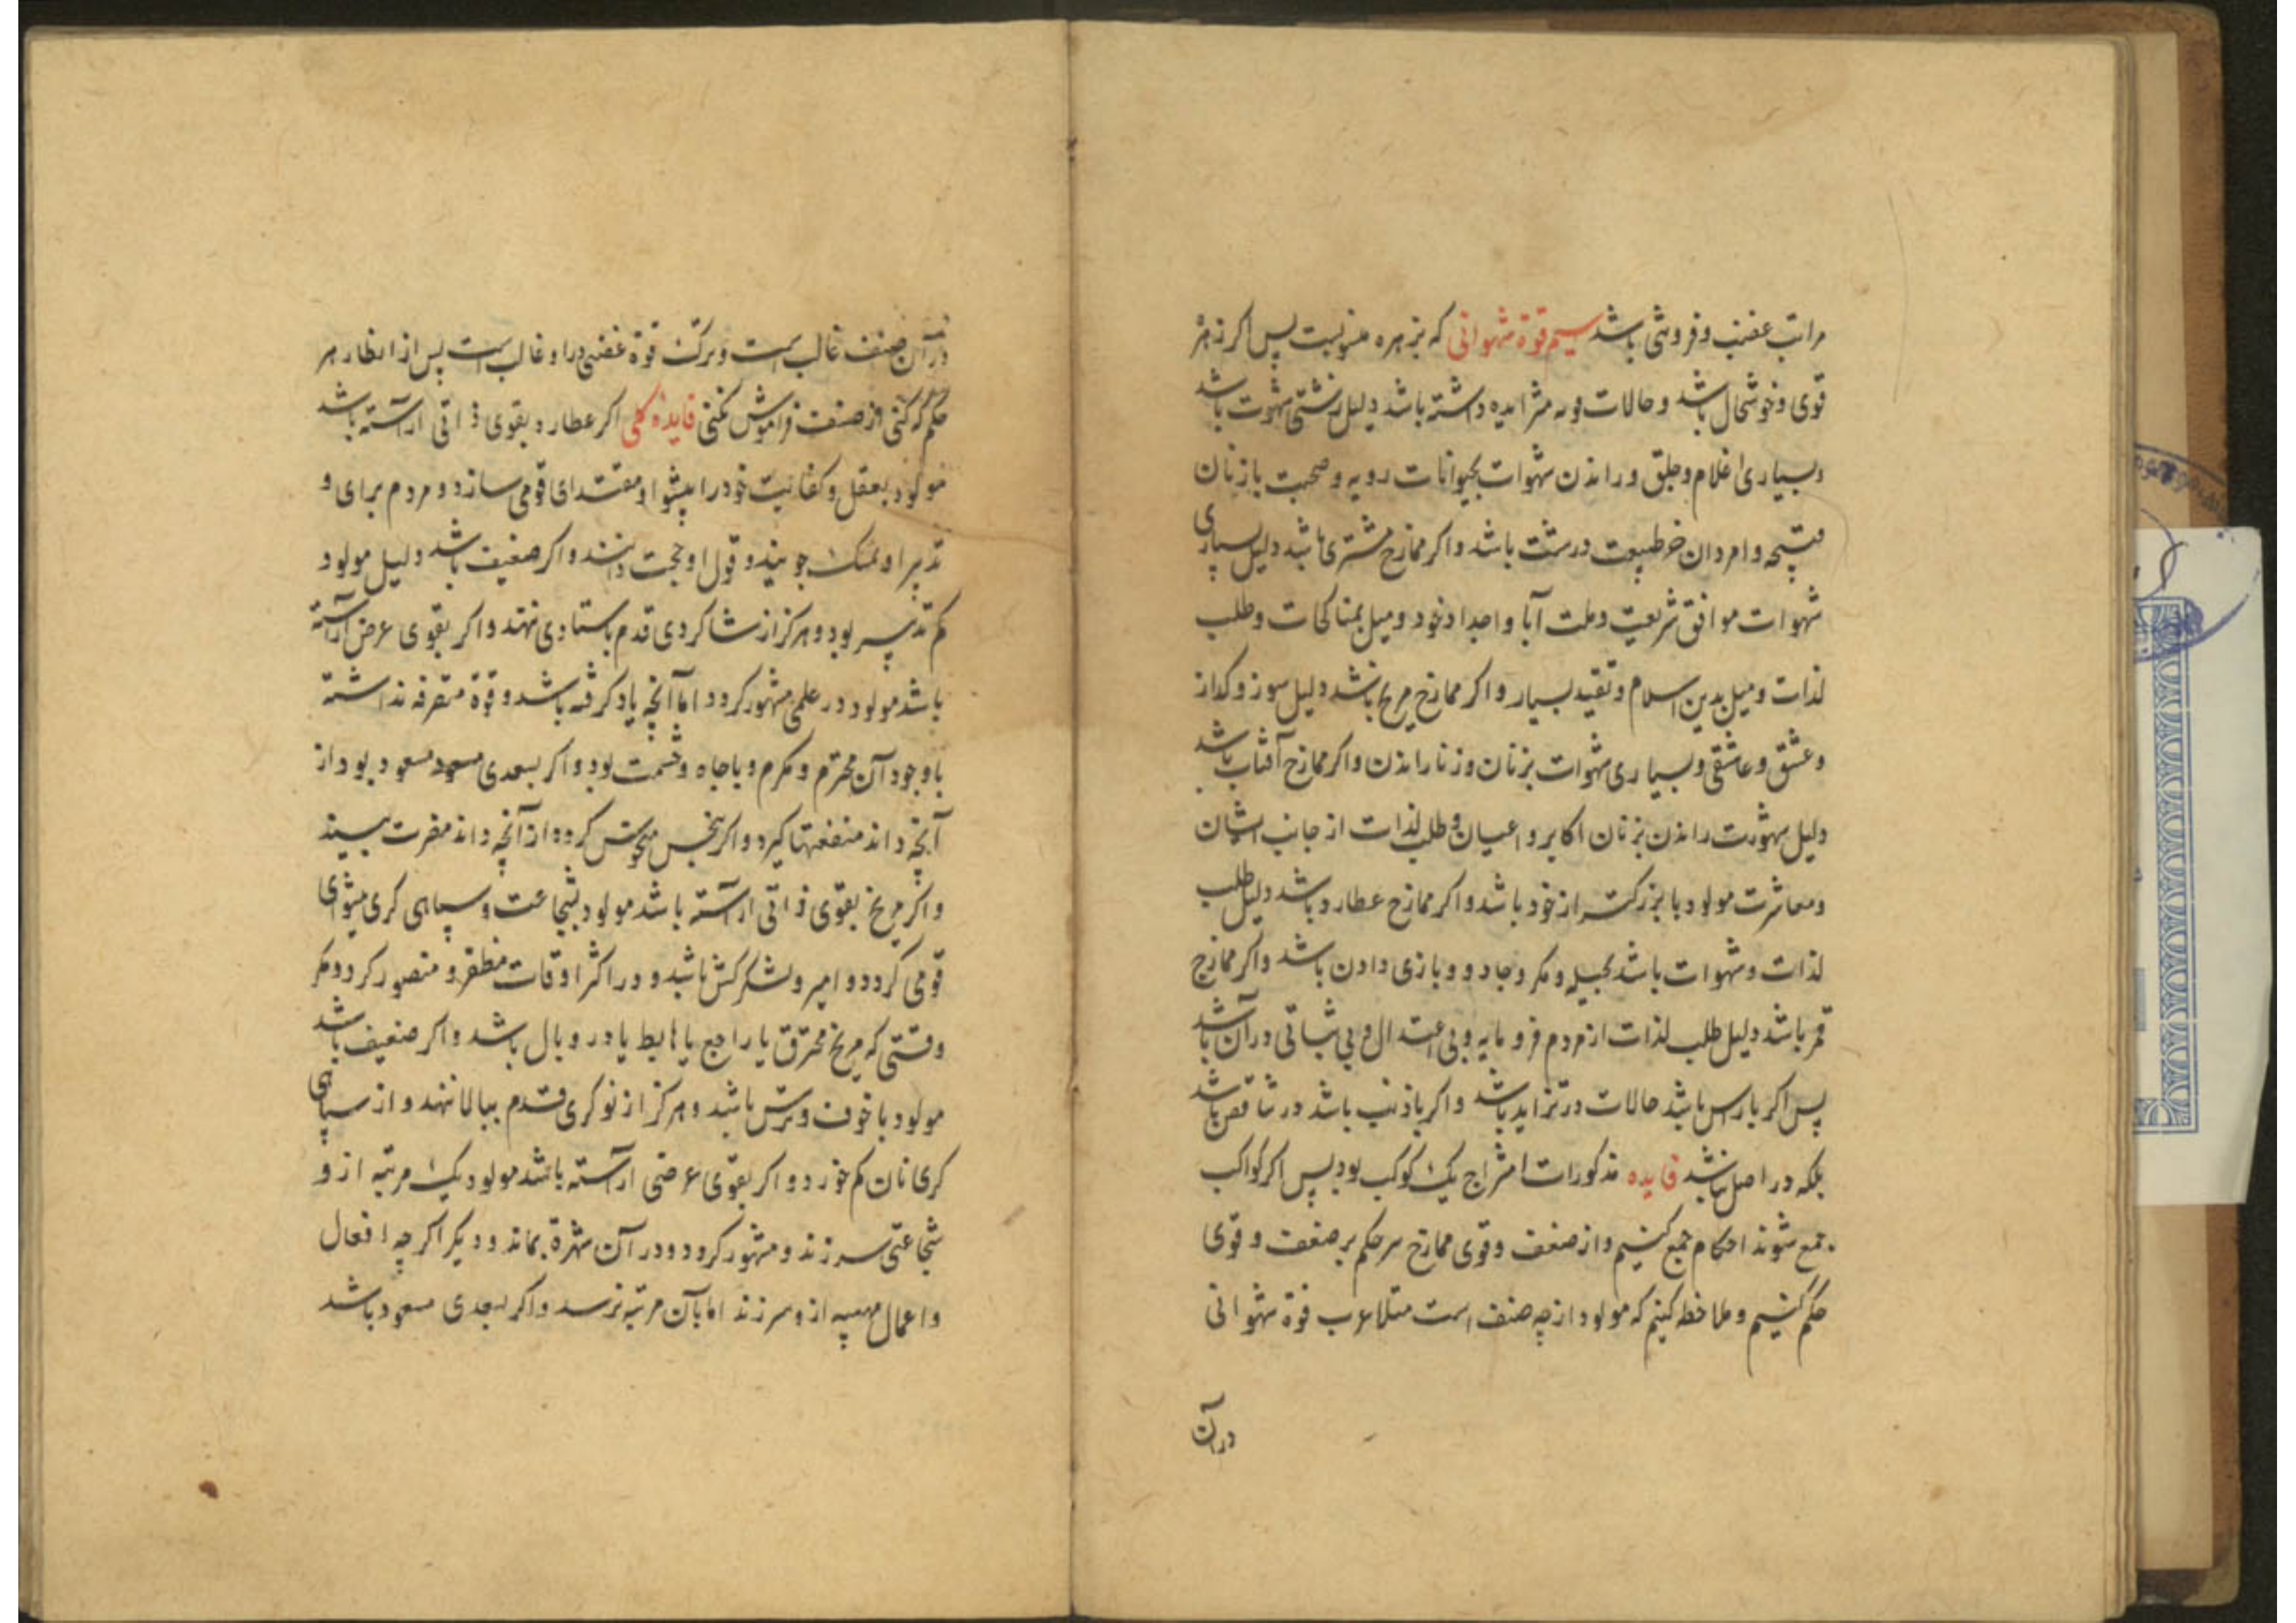 مراتب غضب و فروشی باشد سیم قوة شهوانی که بزهره منسوبست پس اکر زهره
قوی و خوشحال باشد و حالات وبه متزایده داشته باشد دلیل زشتی شهوت باشد
و بسیاری اغلام و جلق و راندن شهوات بحیوانات رویه و صحبت با زنان
قبیحه و امردان خر طبیعت درشت باشد و اکر ممازج مشتری باشد دلیل بسیاری
شهوات موافق شریعت و ملت آبا و اجداد خود و میل بمناکحات و طلب
لذات و میل بدین اسلام و تقید بسیار و اکر ممازج مریخ باشد دلیل سوز و کداز
و عشق و عاشقی و بسیاری شهوات بزنان و زنا راندن و اکر ممازج آفتاب باشد
دلیل شهوت راندن بزنان اکابر و اعیان و طلب لذات از جانب ایشان
و معاشرت مولود با بزرکتر از خود باشد و اکر ممازج عطارد باشد دلیل طلب
لذات و شهوات باشد بحیله و مکر و جادو و بازی دادن باشد و اکر ممازج
قمر باشد دلیل طلب لذات از مردم فرومایه و بی اعتدال و بی ثباتی در آن باشد
پس اکر با راس باشد حالات در تزاید باشد و اکر با ذنب باشد در تناقص باشد
بلکه در اصل نباشد فایده مذکورات امتزاج یک کوکب بود پس اکر کواکب
جمع شوند احکام جمع کنیم و از ضعف و قوی ممازج هر حکم بر ضعف و قوی
حکم کنیم و ملاحظه کنیم که مولود از چه صنف است مثلا عرب قوة شهوانی
در آن
در آن صنف غالب است و ترک قوة غضبی در او غالب است پس از انظار هر
حکم که کنی از صنف فراموش نکنی فایده کلی اکر عطارد بقوی ذاتی آراسته باشد
مولود بعقل و کفایت خود را پیشوا و مقتدای قومی سازد و مردم برای و
تدبیر او تمسک جویند و قول او حجت دانند و اکر ضعیف باشد دلیل مولود
کم تدبیر بود و هرکز از شاکردی قدم باستادی ننهد و اکر بقوی عرضی آراسته
باشد مولود در علمی مشهور کردد اما آنچه یاد کرفته باشد و قوة متصرفه نداشته
با وجود آن محترم و مکرم و با جاه و حشمت بود و اکر بسعدی مسعود مسعود بود از
آنچه داند منفعتها کیرد و اکر بنحس منحوس کردد از آنچه داند مضرت بیند
و اکر مریخ بقوی ذاتی آراسته باشد مولود بشجاعت و سپاهی کری پیشوای
قومی کردد و امیر و لشکرکش باشد و در اکثر اوقات مظفر و منصور کردد مکر
وقتی که مریخ محترق یا راجع یا هابط یا در وبال باشد و اکر ضعیف باشد
مولود با خوف و ترس باشد و هرکز از نوکری قدم ببالا ننهد و از سپاهی
کری نان کم خورد و اکر بقوی عرضی آراسته باشد مولود یک مرتبه از و
شجاعتی سر زند و مشهور کردد و در آن شهرة بماند و دیکر اکر چه افعال
و اعمال مهیبه از و سر زند اما بآن مرتبه نرسد و اکر بسعدی مسعود باشد